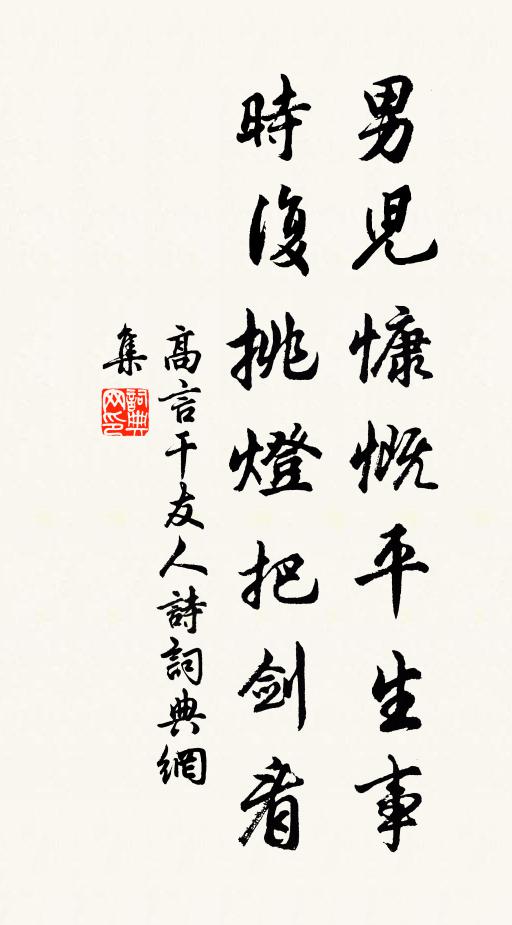 男兒慷慨平生事
時復挑燈把劍看
高言干友人詩詞典網
集
詞典
网印